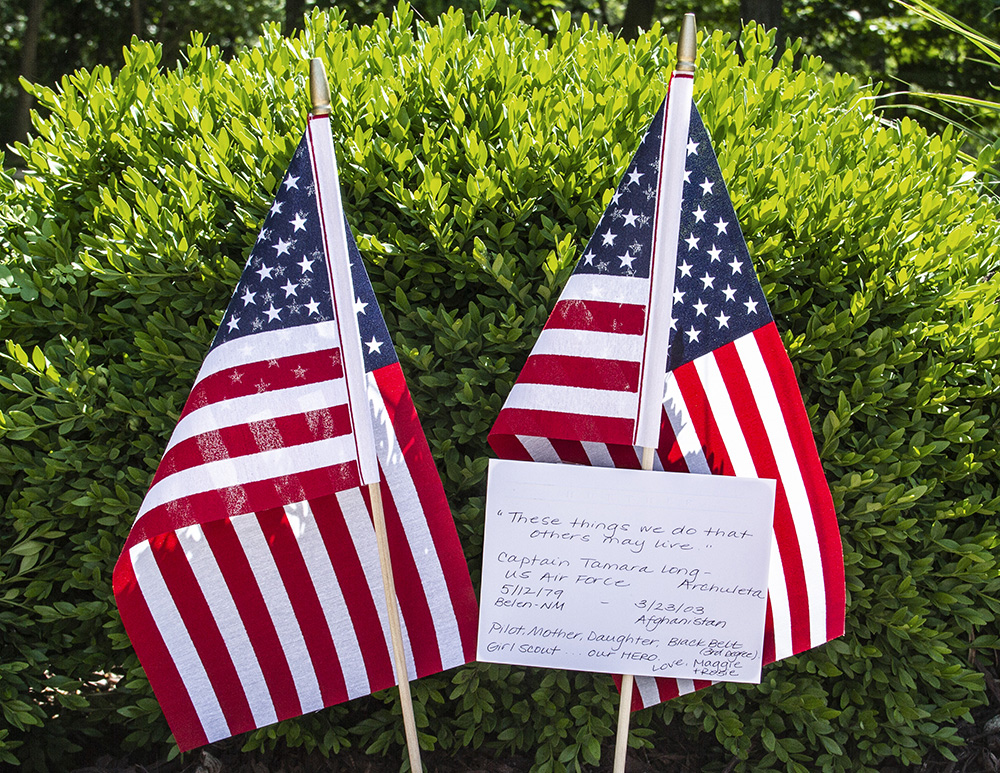 "These things we do that
others may live."
Captain Tamara Long-
US Air Force Archuleta
5/12/79 - 3/23/03
Belen-NM Afghanistan
Pilot, Mother, Daughter, Black Belt
(3rd Degree)
Girl Scout... our HERO.
Love, Maggie
+ Rosie